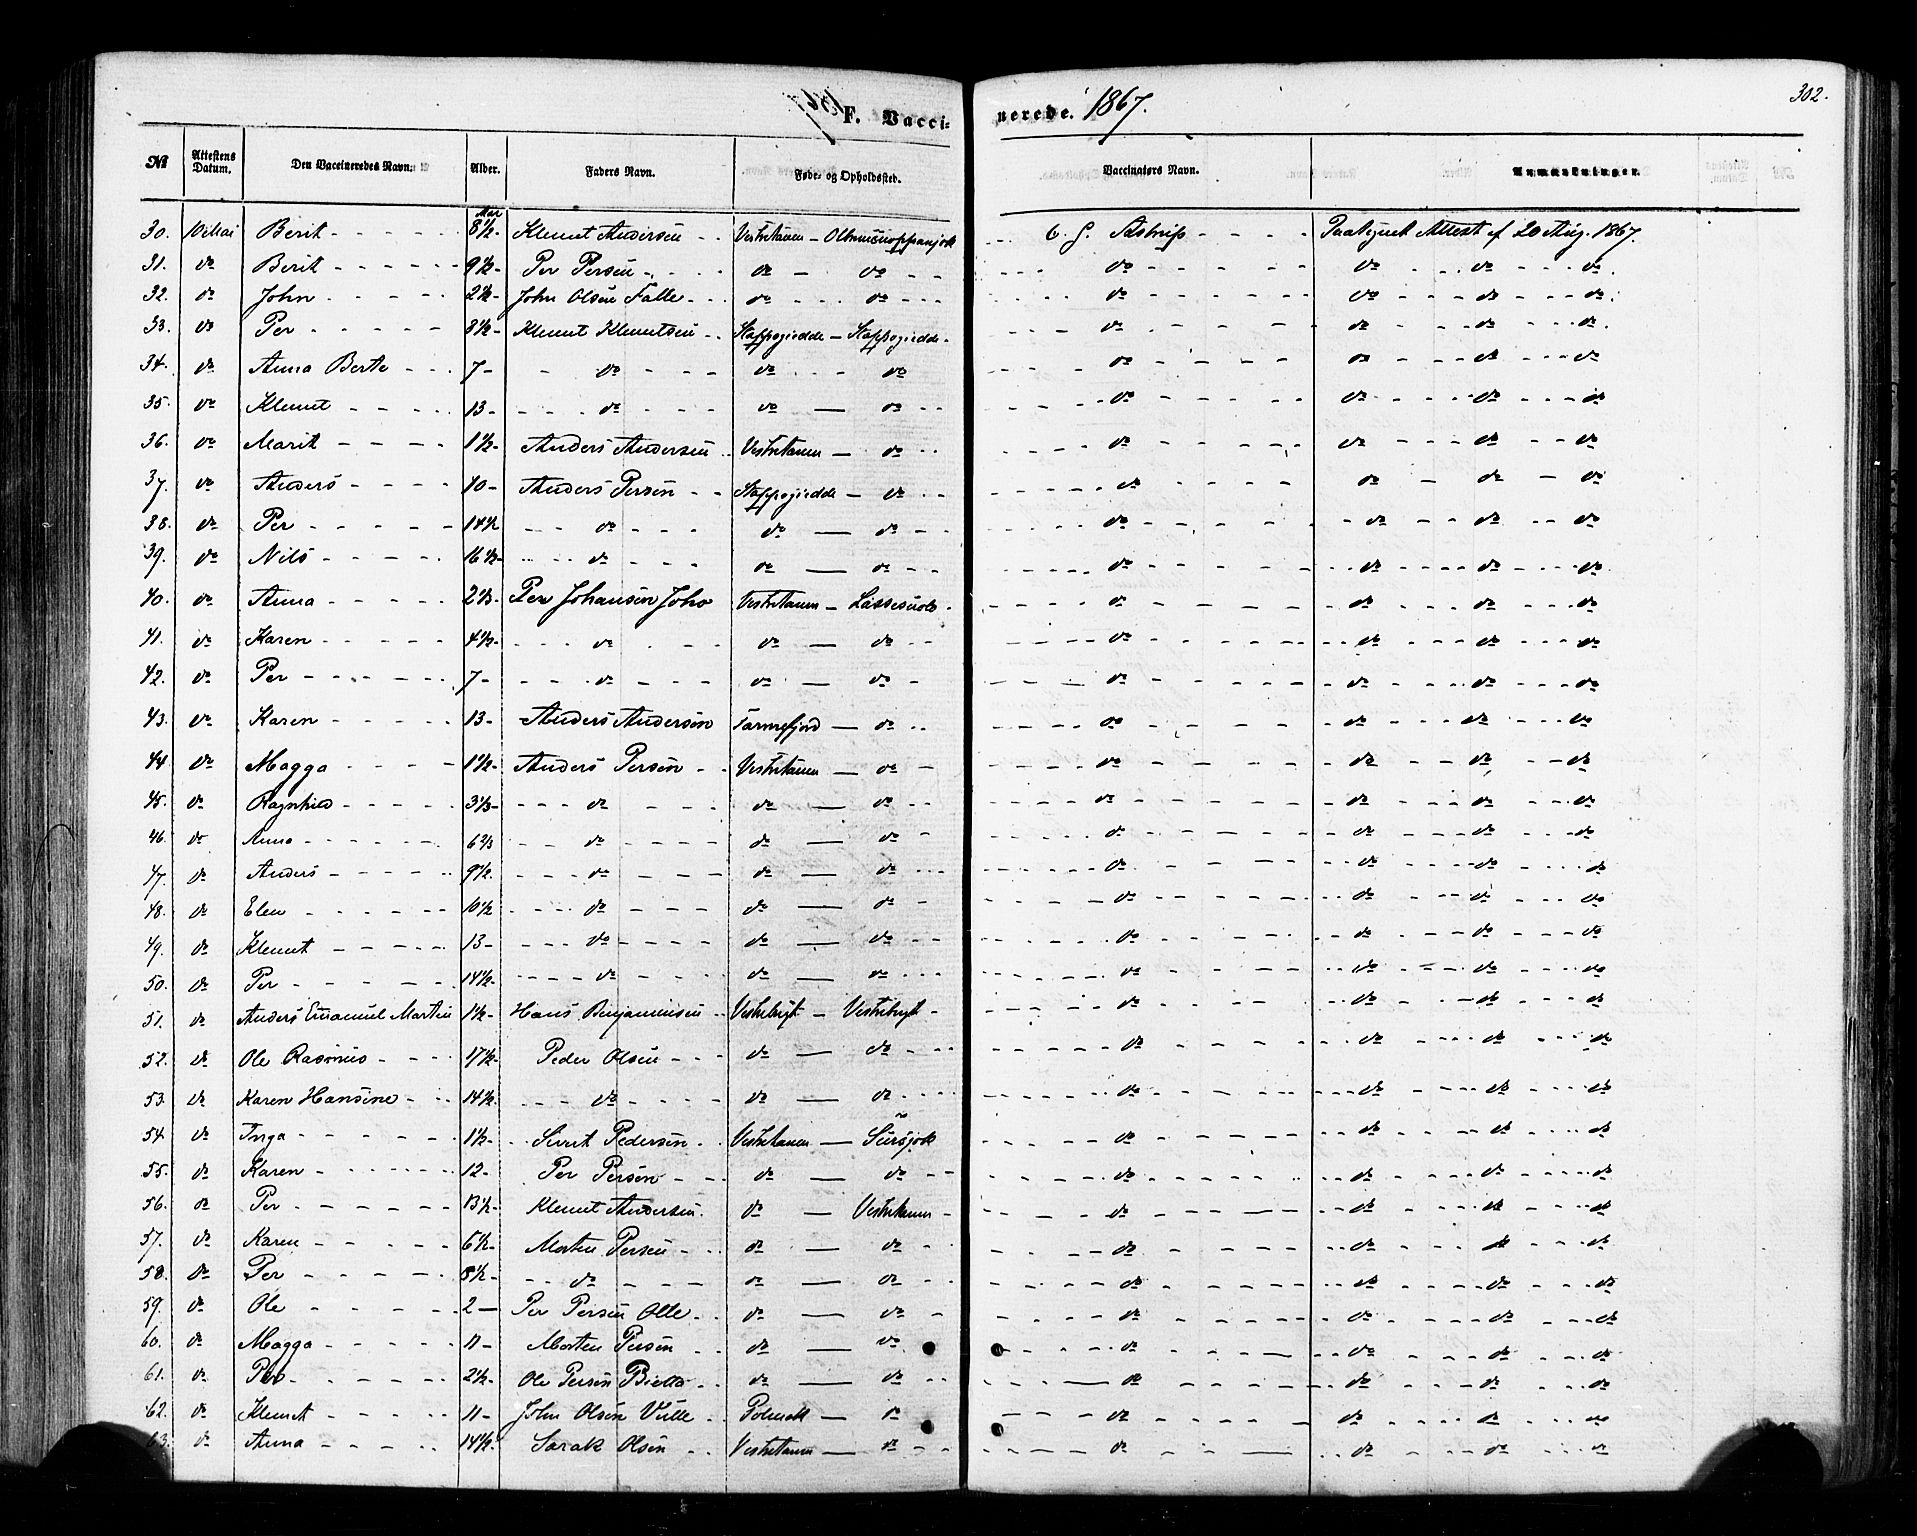 302.
F. Vacci- nerede. 1867.
№ Attestens Datum. Den Vaccineredes Navn. Alder. Faders Navn. Føde- og Opholdssted. Vaccinators Navn. Anmærkninger.
30. 10 Mai Berit - - - 8½ - Klemet Andersen - - Vestretanen - C. G. Astrup - - - - Paategnet Attest af 20 Aug. 1867.
31. do Berit - - - 9½ - Per Persen - - do - do - - do - - do - - do - - do.
32. do John - - - 2½ - John Olsen Falle - - do - - do - - do - - do - - do - - do.
33. do Per - - - 8½ - Klemet Klemetsen - - Stappogiedde - Stappogiedde - do - - do - - do - - do.
34. do Anna Berte - - 7 - - do - - do - - do - - do - - do - - do - - do
35. do Klemet - - - 13 - - do - - do - do - - do - - do - - do - - do
36. do Marit - - - 1½ - Anders Andersen - Vestretanen - do - - do - - do - - do - - do
37. do Anders - - - 10 - Anders Persen - - Stappogiedde - do - - do - - do - do - do
38. do Per - - - 14½ - - do - - do - do - - do - - do - - do - - do
39. do Nils - - - 16½ - - do - - do - do - - do - - do - - do - - do
40. do Anna - - - 2⅓ - Per Johansen Joho Vestretanen - - do - - do - - do - - do
41. do Karen - - - 4½ - - do - - do - do - - do - - do - - do - - do
42. do Per - - - 7 - - do - - do - do - do - - do - - do - - do
43. do Karen - - - 13 - Anders Andersen Tarmefjord - do - - do - - do - - do - - do
44. do Magga - - - 1½ - Anders Persen - - Vestretanen - do - do - - do - - do - - do
45. do Ragnhild - - - 3⅓ - - do - - do - do - - do - - do - - do - - do
46. do Anna - - - 6⅔ - do - - do - do - do - - do - - do - - do
47. do Anders - - - 9½ - - do - - do - do - - do - - do - - do - - do
48. do Elen - - - 10½ - - do - - do - do - do - - do - - do - - do
49. do Klemet - - - 13 - - do - - do - do - - do - - do - - do - - do
50. do Per - - - 14½ - - do - - do - do - - do - - do - - do - - do
51. do Anders Emanuel Martin 1½ - Hans Benjaminsen - Vestretrygt - Vestretrygt - do - - do - - do - - do
52. do Ole Rasmus - - - 17½ - Peder Olsen - - do - do - - do - - do - - do - - do
53. do Karen Hansine - - 14½ - - do - - do - do - - do - - do - - do - - do
54. do Inga - - - 1½ - Sivert Pedersen - Vestretanen - Sürsjok do - - do - - do - - do
55. do Karen - - - 12 - Per Persen - - do - do - - do - - do - - do - - do
56. do Per - - - 13½ - Klemet Andersen. do - Vestretanen - do - - do - - do - - do
57. do Karen - - - 6½ - Morten Persen - - do - do - - do - - do - - do - - do
58. do Per - - - 8½ - - do - - do - do - - do - - do - - do - - do
59. do Ole - - - 2 - Per Persen Olle - - do - do - do - - do - - do - - do
60. do Magga - - - 11 - Morten Persen do - do - do - - do - - do - - do
61. do Per - - - 2½ - Ole Persen Bietta - - do - do - - do - - do - - do - - do
62. do Klemet - - - 11 - John Olsen Vulle - - Polmak - do - - do - - do - - do - - do
63. do Anna - - - 14½ - Sarak Olsen - - Vestretanen - do - - do - - do - - do - - do